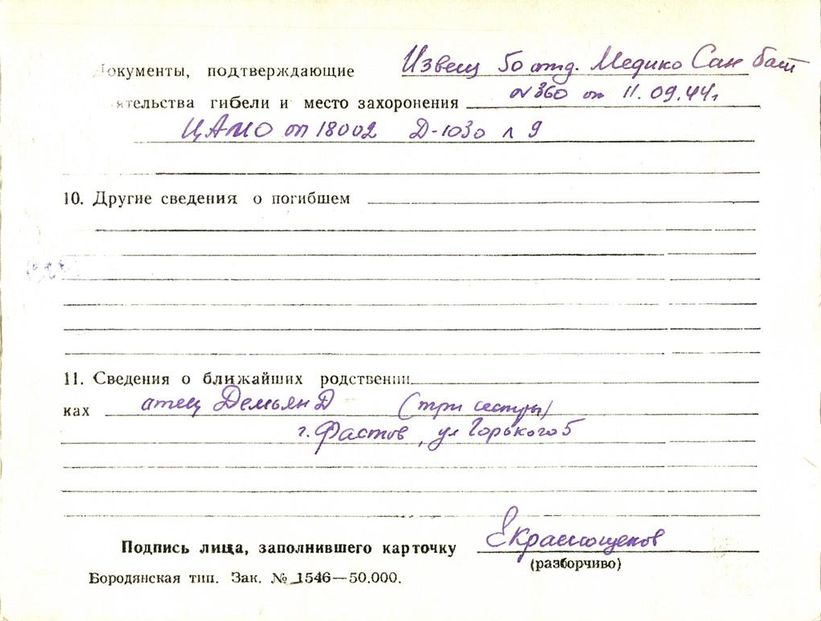 Документы, подтверждающие Извещ 50 отд. Медико Сан бат
ятельства гибели и место захоронения №360 от 11.09.44г
ЦАМО оп 18002 Д-1030 л 9
10. Другие сведения о погибшем
11. Сведения о ближайших родственни
ках отец Демьян Д (три сестры)
г. Фастов, ул Горького 5
Подпись лица, заполнившего карточку ЕКраснощеков
(разборчиво)
Бородянская тип. Зак. № 1546—50.000.